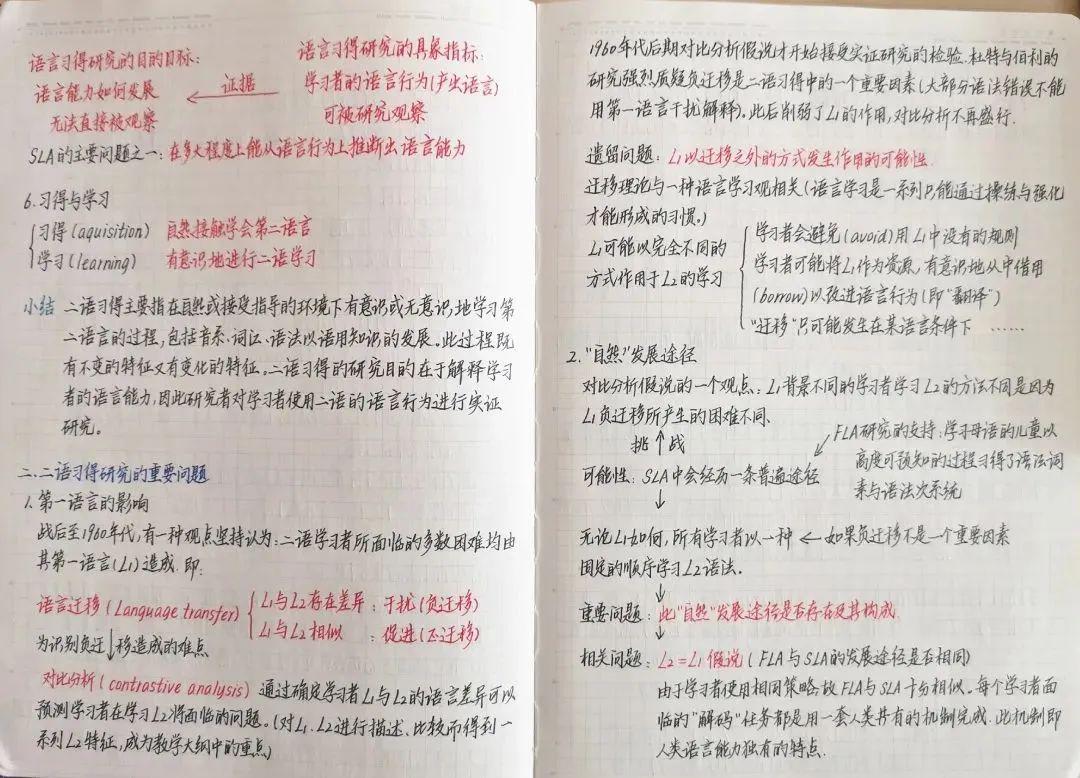 语言习得研究的目的目标:
语言能力如何发展
无法直接被观察
证据
语言习得研究的具象指标:
学习者的语言行为(产出语言)
可被研究观察
SLA的主要问题之一:在多大程度上能从语言行为上推断出语言能力
6.习得与学习
习得(aquisition) 自然接触学会第二语言
学习(learning) 有意识地进行二语学习
小结 二语习得主要指在自然或接受指导的环境下有意识或无意识地学习第
二语言的过程,包括音系、词汇、语法以语用知识的发展。此过程既
有不变的特征又有变化的特征,二语习得的研究目的在于解释学习
者的语言能力,因此研究者对学习者使用二语的语言行为进行实证
研究。
二.二语习得研究的重要问题
1.第一语言的影响
战后至1960年代,有一种观点坚持认为:二语学习者所面临的多数困难均由
其第一语言(L1)造成.即:
语言迁移(Language transfer)
L1与L2存在差异:干扰(负迁移)
L1与L2相似:促进(正迁移)
为识别负迁移造成的难点
对比分析(contrastive analysis) 通过确定学习者L1与L2的语言差异可以
预测学习者在学习L2将面临的问题。(对L1、L2进行描述、比较而得到一
系列L2特征,成为教学大纲中的重点)
1960年代后期对比分析假说才开始接受实证研究的检验.杜特与伯利的
研究强烈质疑负迁移是二语习得中的一个重要因素(大部分语法错误不能
用第一语言干扰解释)。此后削弱了L1的作用,对比分析不再盛行.
遗留问题:L1以迁移之外的方式发生作用的可能性.
迁移理论与一种语言学习观相关(语言学习是一系列只能通过操练与强化
才能形成的习惯。)
L1可能以完全不同的
方式作用于L2的学习
学习者会避免(avoid)用L1中没有的规则
学习者可能将L1作为资源,有意识地从中借用
(borrow)以改进语言行为(即"翻译")
"迁移"只可能发生在某语言条件下 ……
2."自然"发展途径
对比分析假说的一个观点:L1背景不同的学习者学习L2的方法不同是因为
L1负迁移所产生的困难不同.
挑战
FLA研究的支持:学习母语的儿童以
高度可预知的过程习得了语法词
素与语法次系统
可能性:SLA中会经历一条普遍途径
无论L1如何,所有学习者以一种 ← 如果负迁移不是一个重要因素
固定的顺序学习L2语法。
重要问题:此"自然"发展途径是否存在及其构成.
相关问题:L2=L1假说(FLA与SLA的发展途径是否相同)
由于学习者使用相同策略,故FLA与SLA十分相似。每个学习者面
临的"解码"任务都是用一套人类共有的机制完成.此机制即
人类语言能力独有的特点.